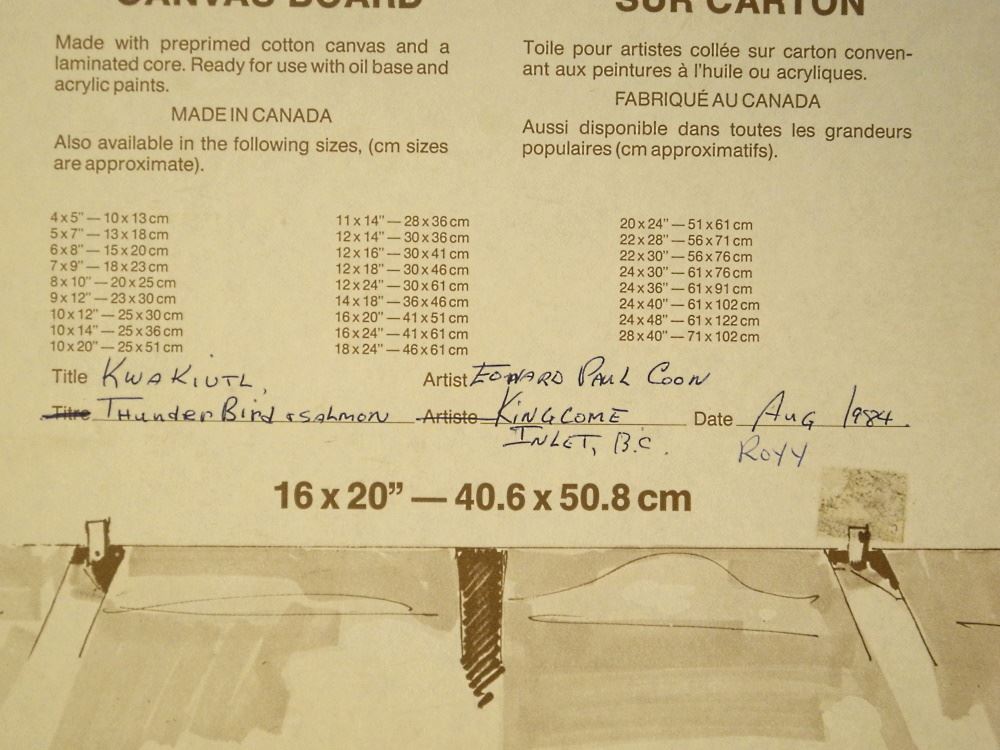 CANVAS BOARD
Made with preprimed cotton canvas and a
laminated core. Ready for use with oil base and
acrylic paints.
MADE IN CANADA
Also available in the following sizes, (cm sizes
are approximate).
SUR CARTON
Toile pour artistes collée sur carton conven-
ant aux peintures à l'huile ou acryliques.
FABRIQUÉ AU CANADA
Aussi disponible dans toutes les grandeurs
populaires (cm approximatifs).
4 x 5" — 10 x 13 cm
5 x 7" — 13 x 18 cm
6 x 8" — 15 x 20 cm
7 x 9" — 18 x 23 cm
8 x 10" — 20 x 25 cm
9 x 12" — 23 x 30 cm
10 x 12" — 25 x 30 cm
10 x 14" — 25 x 36 cm
10 x 20" — 25 x 51 cm
11 x 14" — 28 x 36 cm
12 x 14" — 30 x 36 cm
12 x 16" — 30 x 41 cm
12 x 18" — 30 x 46 cm
12 x 24" — 30 x 61 cm
14 x 18" — 36 x 46 cm
16 x 20" — 41 x 51 cm
16 x 24" — 41 x 61 cm
18 x 24" — 46 x 61 cm
20 x 24" — 51 x 61 cm
22 x 28" — 56 x 71 cm
22 x 30" — 56 x 76 cm
24 x 30" — 61 x 76 cm
24 x 36" — 61 x 91 cm
24 x 40" — 61 x 102 cm
24 x 48" — 61 x 122 cm
28 x 40" — 71 x 102 cm
Title KWAKIUTL, Artist EDWARD PAUL COON
Titre THunder Bird & SALMON Artiste KINGCOME Date AUG 1984.
INLET, B.C. ROYY
16 x 20" — 40.6 x 50.8 cm